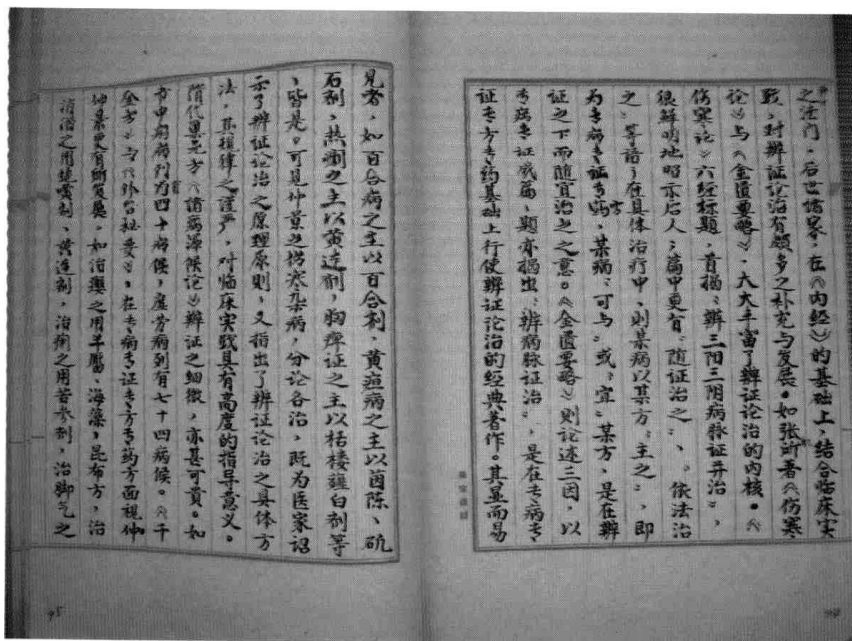 之法门。后世诸家,在《内经》的基础上,结合临床实
践,对辨证论治有颇多之补充与发展。如张所著《伤寒
论》与《金匮要略》,大大丰富了辨证论治的内核。《
伤寒论》六经标题,首揭“辨三阳三阴病脉证并治”,
很鲜明地昭示后人;篇中更有“随证治之”、“依法治
之”等语;在具体治疗中,则某病以某方“主之”,即
为专病专证专方,某病“可与”或“宜”某方,是在辨
证之下而随宜治之之意。《金匮要略》则论述三因,以
专病专证成篇,题亦揭出“辨病脉证治”,是在专病专
证专方专药基础上行使辨证论治的经典著作。其显而易
见者,如百合病之主以百合剂,黄疸病之主以茵陈、矾
石剂,热痢之主以黄连剂,胸痹证之主以栝楼薤白剂等
,皆是。可见仲景之伤寒杂病,分论各治,既为医家诏
示了辨证论治之原理原则,又指出了辨证论治之具体方
法,其规律之谨严,对临床实践具有高度的指导意义。
隋代巢元方《诸病源候论》辨证之细微,亦甚可贵。如
书中将痢病列为四十病候,虚劳病列有七十四病候。《千
金方》与《外台秘要》,在专病专证专方专药方面视仲
仲景更有所发展。如治瘿之用羊靥、海藻、昆布方,治
消渴之用 黄连剂,治痢之用苦参剂,治脚气之
95